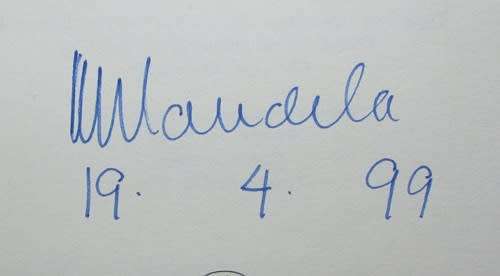 NMandela
19. 4. 99